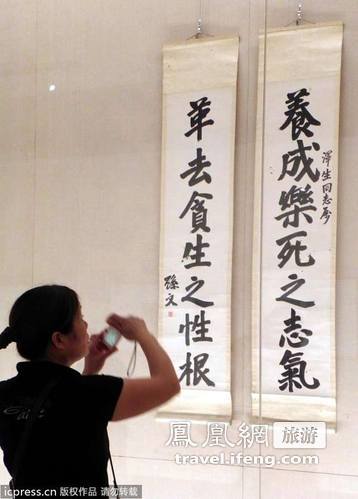 養成樂死之志氣
生同志
革去貪生之性根
孫文
鳳凰網 旅游
travel.ifeng.com
icpress.cn 版权作品 请勿转载